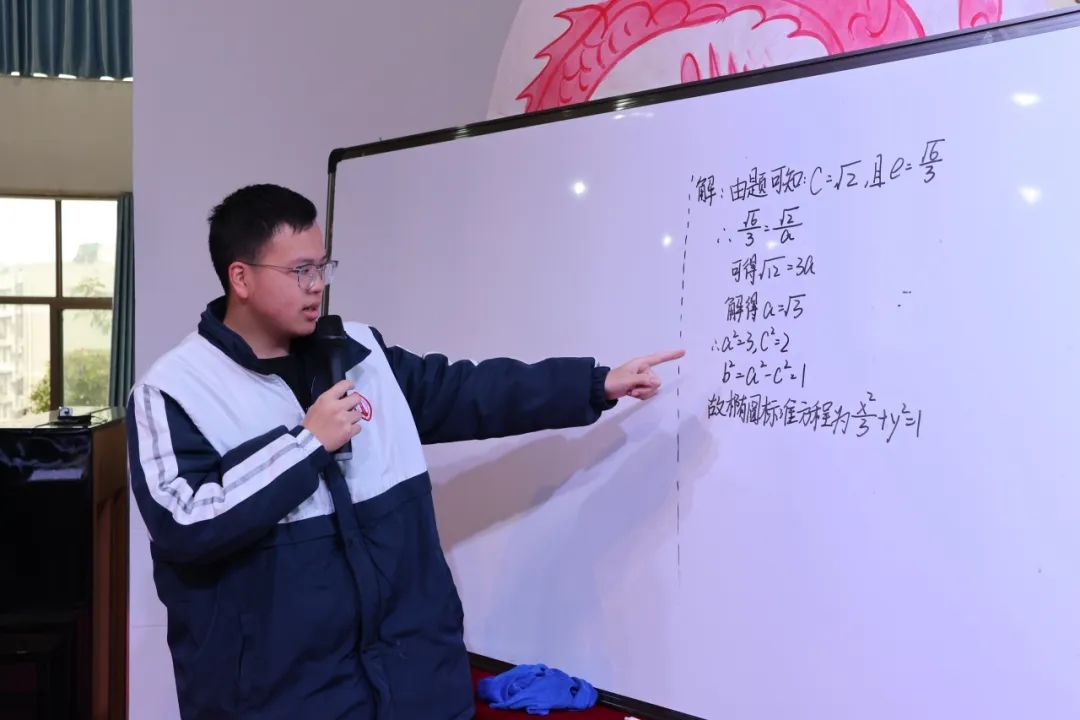 解：由题可知：C=√2，且e=√6/3
∴ √6/3=√2/a
可得√12=3a
解得a=√3
∴a²=3，C²=2
b²=a²-c²=1
故椭圆标准方程为x²/3+y²=1